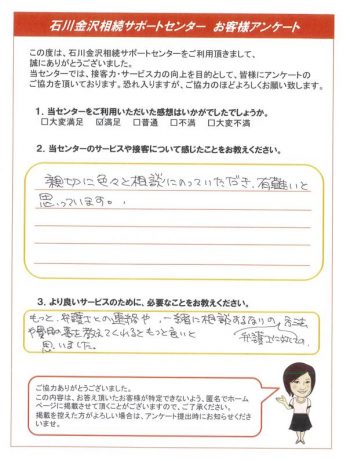 石川金沢相続サポートセンター お客様アンケート
この度は、石川金沢相続サポートセンターをご利用頂きまして、
誠にありがとうございました。
当センターでは、接客力・サービス力の向上を目的として、皆様にアンケートの
ご協力を頂いております。恐れ入りますが、ご協力のほどよろしくお願い致します。
1. 当センターをご利用いただいた感想はいかがでしたでしょうか。
□大変満足 ☑満足 □普通 □不満 □大変不満
2. 当センターのサービスや接客について感じたことをお教えください。
親切に色々と相談にのっていただき、有難いと
思っています。
3. より良いサービスのために、必要なことをお教えください。
もっと、弁護士との連絡や、一緒に相談するなりの、方法
や費用の事を教えてくれるともっと良いと
弁護士に対しての、
思いました。
ご協力ありがとうございました。
この内容は、お答え頂いたお客様が特定できないよう、匿名でホーム
ページに掲載させて頂くことがございますので、ご了承ください。
掲載を控えた方がよろしい場合は、アンケート提出時にお知らせくださ
いませ。